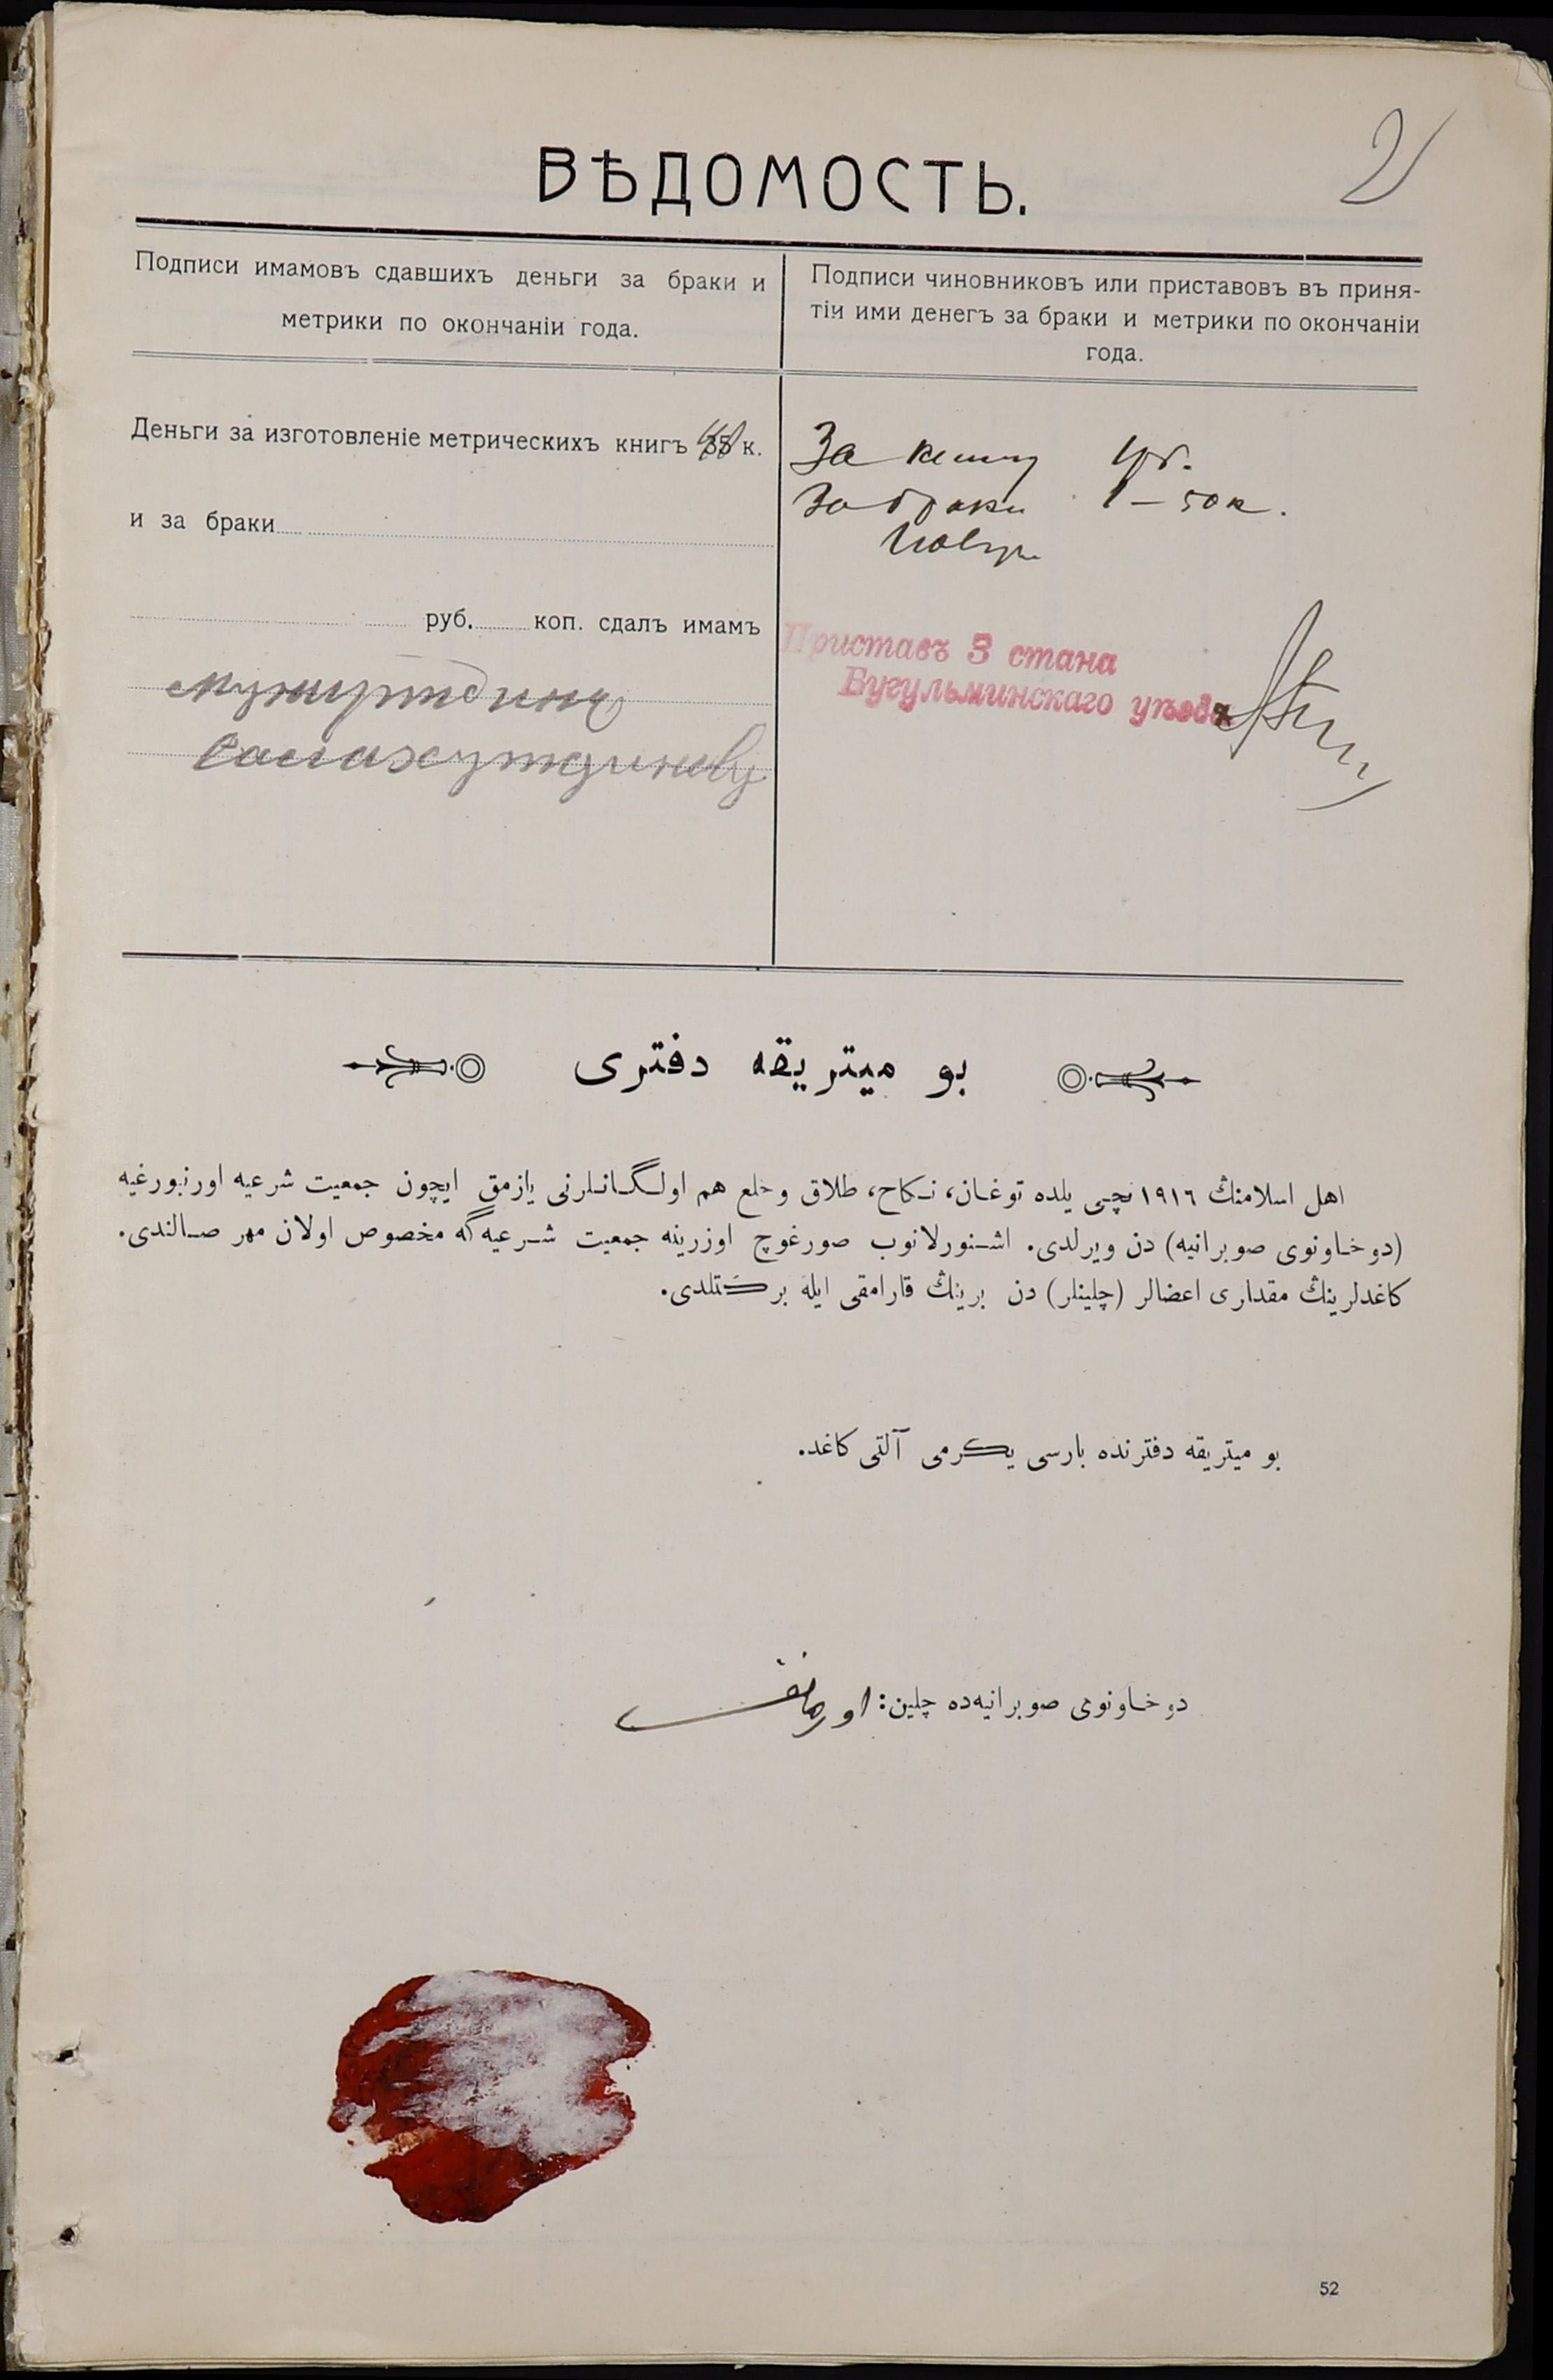 2
ВѢДОМОСТЬ.
Подписи имамовъ сдавшихъ деньги за браки и
метрики по окончаніи года.
Подписи чиновниковъ или приставовъ въ приня-
тіи ими денегъ за браки и метрики по окончаніи
года.
Деньги за изготовленіе метрическихъ книгъ 35 к.
и за браки
руб. коп. сдалъ имамъ
За книгу
За браки 1–50к.
Приставъ 3 стана
Бугульминскаго уѣзда
بو میتریقه دفتری
اهل اسلامنڭ ١٩١٦ نچی یلده توغان، نکاح، طلاق و خلع هم اولگانلرنی یازمق ایچون جمعیت شرعیه اورنبورغیه
(دوخاونوی صوبرانیه) دن ویرلدی. اشنورلانوب صورغوچ اوزرینه جمعیت شرعیه‌گه مخصوص اولان مهر صالندی.
کاغدلرینڭ مقداری اعضالر (چلینلر) دن برینڭ قارامقی ایله برکتلدی.
بو میتریقه دفترنده بارسی یکرمی آلتی کاغد.
دوخاونوی صوبرانیه‌ده چلین:
52